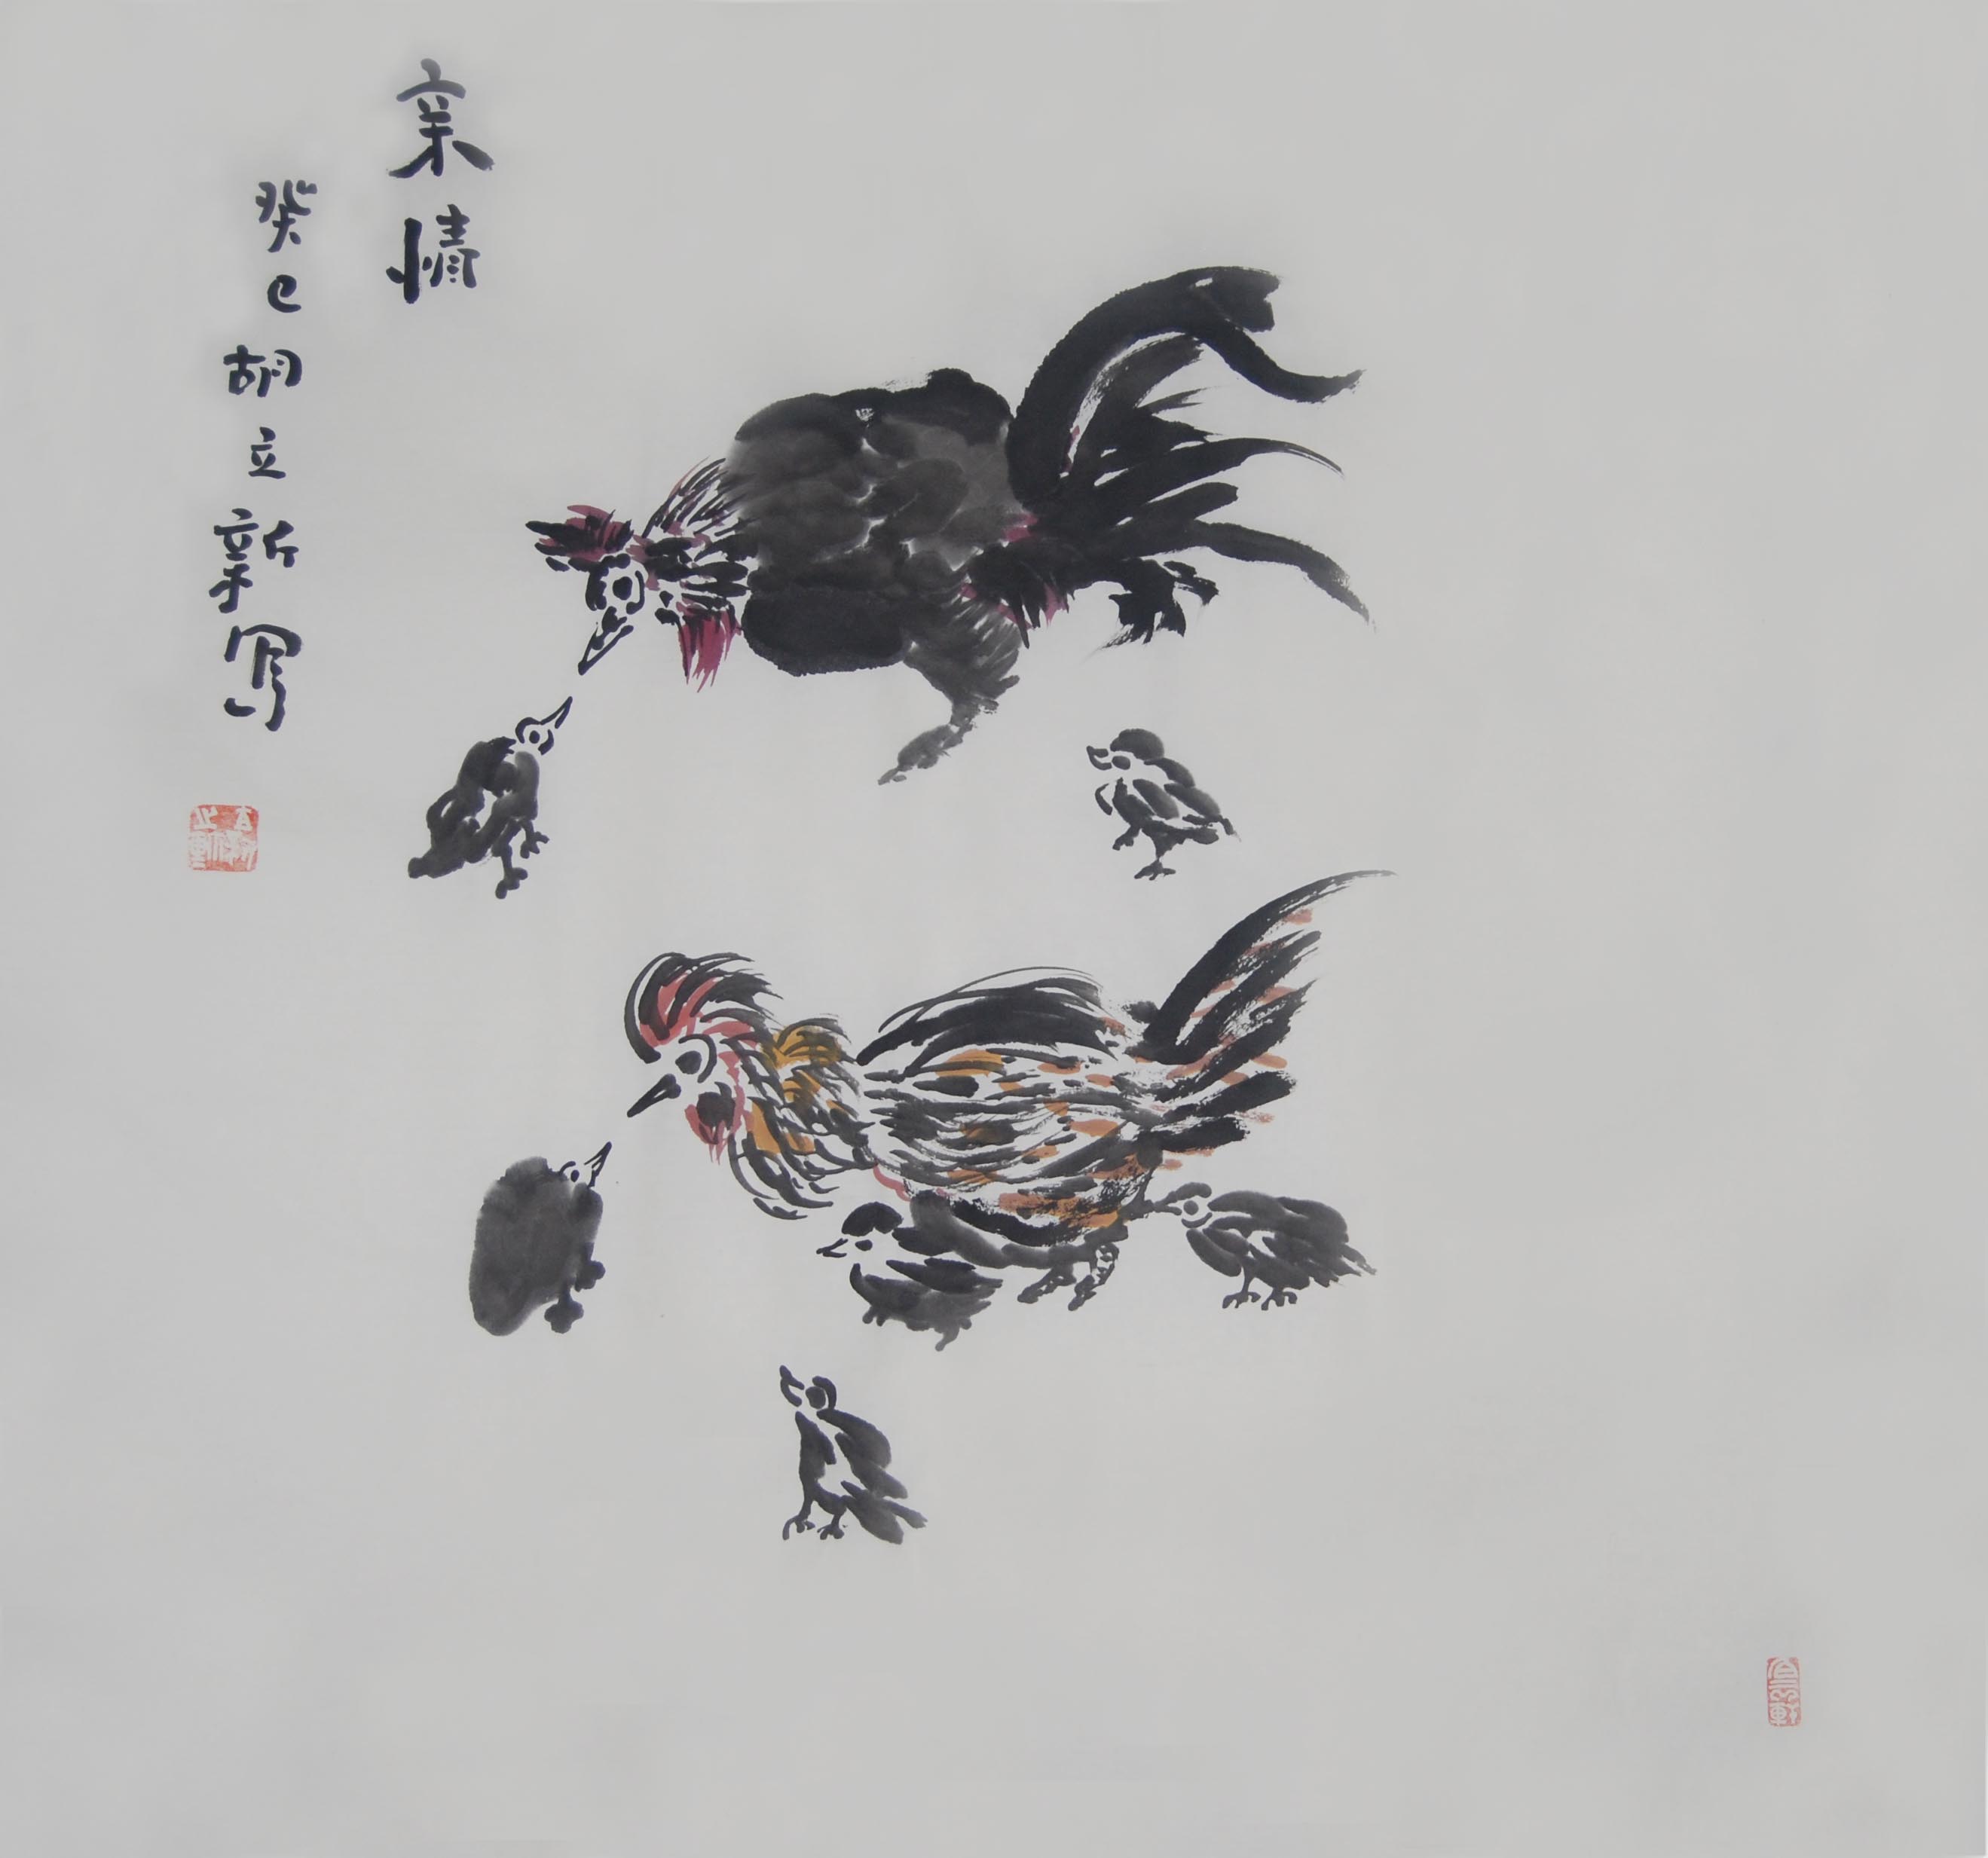 亲情
癸巳胡立新写